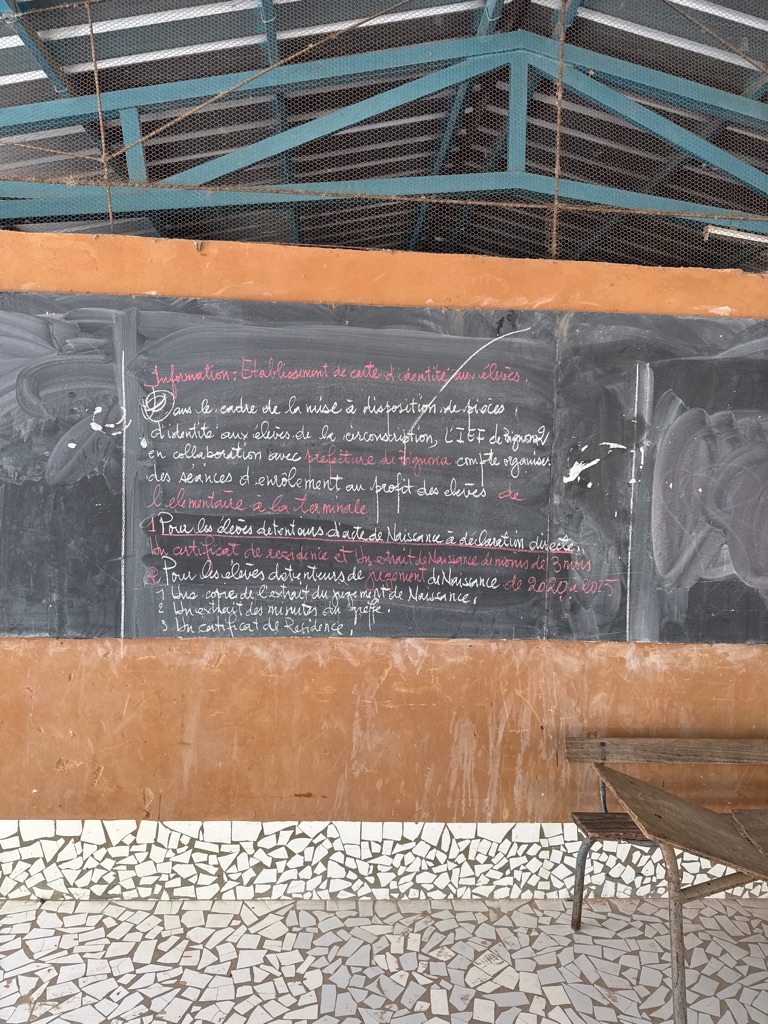 Information : Etablissement de carte d'identité aux élèves.
Dans le cadre de la mise à disposition de pièces
d'identité aux élèves de la circonscription, L'IEF de Bignona2
en collaboration avec prefecture de Bignona compte organiser
des séances d'enrôlement au profit des elèves de
l'elementaire à la terminale
1 Pour les élèves detenteurs d'acte de Naissance à declaration directe.
Un certificat de residence et Un extrait de Naissance de moins de 3 mois
2 Pour les élèves detenteurs de jugement de Naissance de 2020 a 2025
1 Une copie de l'extrait du jugement de Naissance.
2 Un extrait des minutes du greffe.
3 Un certificat de Residence.